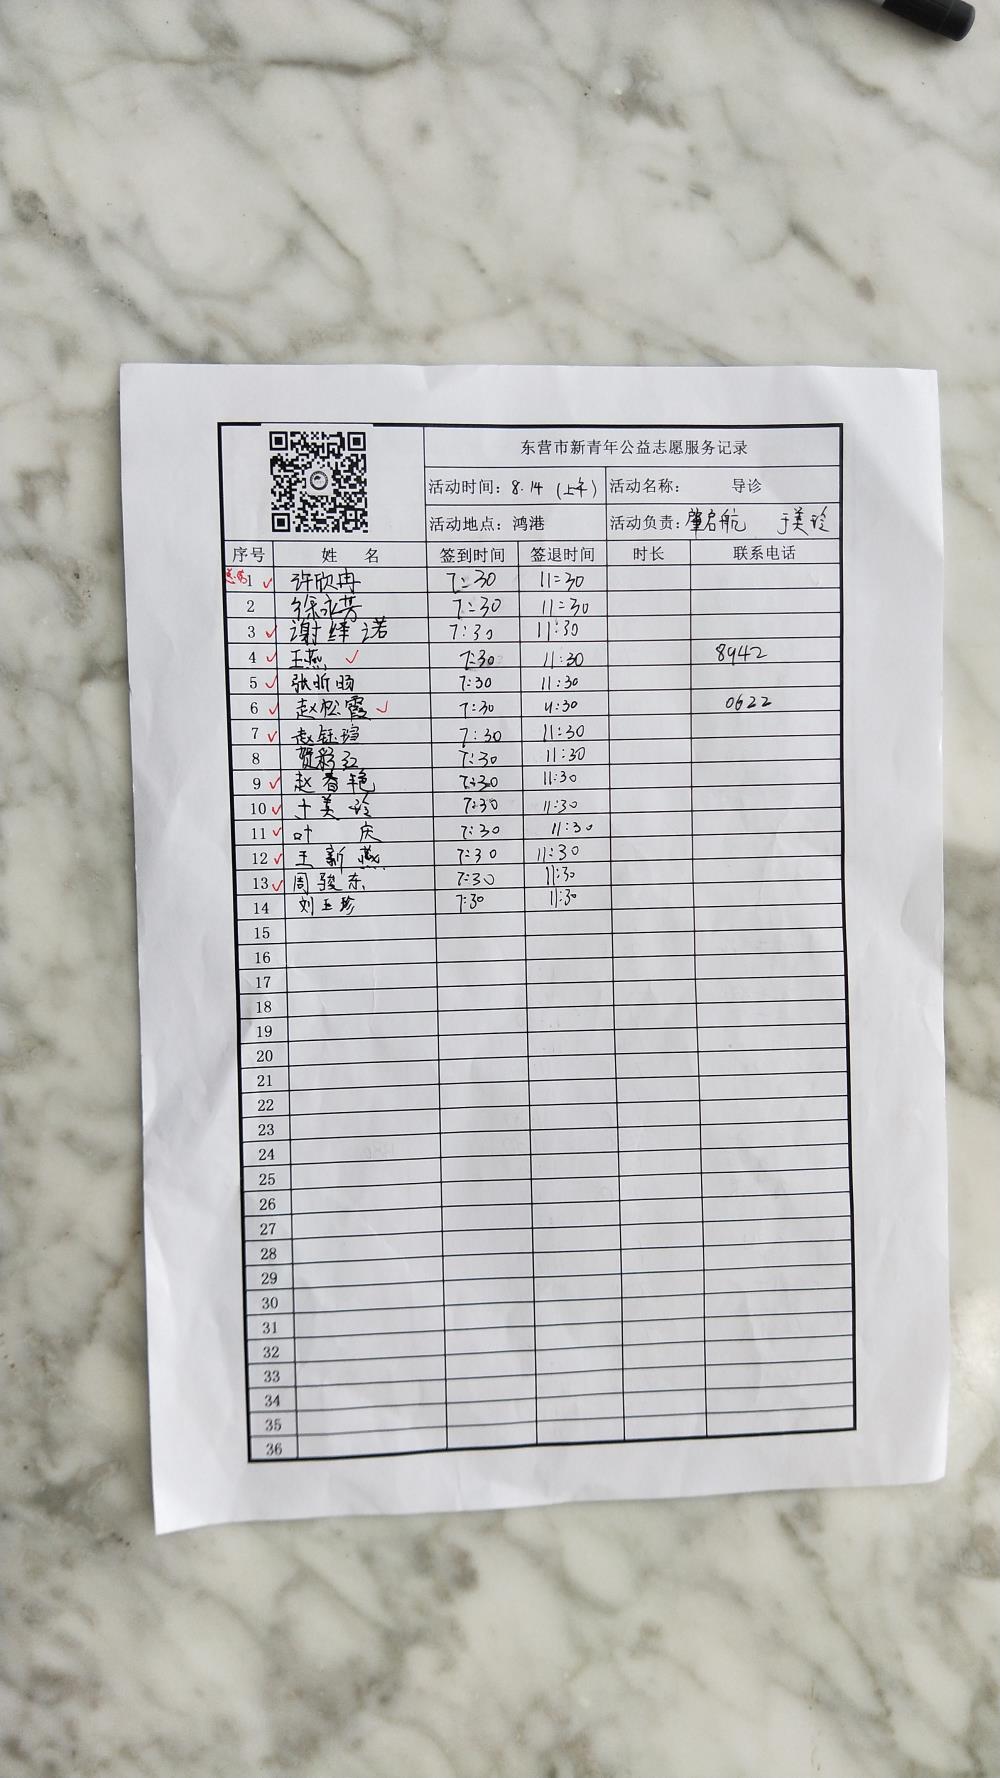 东营市新青年公益志愿服务记录
活动时间：8.14（上午） 活动名称： 导诊
活动地点：鸿港 活动负责：肇启航 于美玲
序号 姓 名 签到时间 签退时间 时长 联系电话
1 ✓ 许欣冉 7:30 11:30
2 徐永芳 7:30 11:30
3 ✓ 谢绎诺 7:30 11:30
4 ✓ 王燕 ✓ 7:30 11:30 8942
5 ✓ 张昕旸 7:30 11:30
6 ✓ 赵松霞 ✓ 7:30 11:30 0622
7 ✓ 赵钰瑄 7:30 11:30
8 贺彩红 7:30 11:30
9 ✓ 赵春艳 7:30 11:30
10 ✓ 于美玲 7:30 11:30
11 ✓ 叶庆 7:30 11:30
12 ✓ 王新燕 7:30 11:30
13 ✓ 周骏东 7:30 11:30
14 刘玉珍 7:30 11:30
15
16
17
18
19
20
21
22
23
24
25
26
27
28
29
30
31
32
33
34
35
36